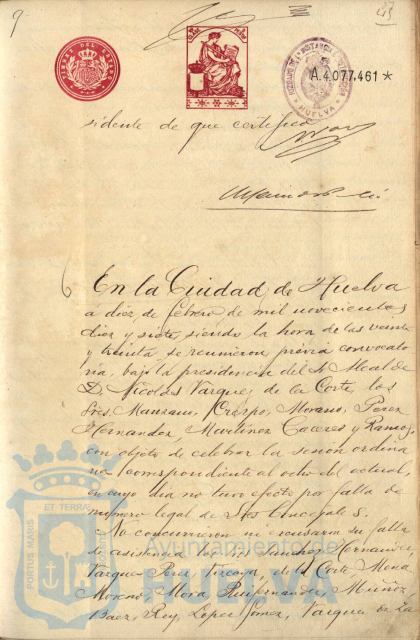 9
TIMBRE DEL ESTADO
A.4.077.461 ★
HUELVA
sidente de que certifico
En la Ciudad de Huelva
a diez de febrero de mil novecientos
diez y siete, siendo la hora de las veinte
y treinta se reunieron prévia convocato
ria, bajo la presidencia del Sr Alcalde
D. Nicolás Vazquez de la Corte los
Sres. Manzano, Crespo, Moreno, Perez
Hernandez, Martinez Caceres y Ramos,
con objeto de celebrar la sesión ordina
ria correspondiente al ocho del actual,
en cuyo dia no tuvo efecto por falta de
número legal de Sres Concejales.
No concurrieron ni escusaron su falta
de asistencia los Hernandez
Vazquez Perez, Vizcaya, de la Corte Mena
Moreno Mora, Ruifernandez, Muñoz
Baez, Rey, Lopez Gomez, Vazquez de la
PORTUS MARIS ET TERRAE
Ayuntamiento de
HUELVA